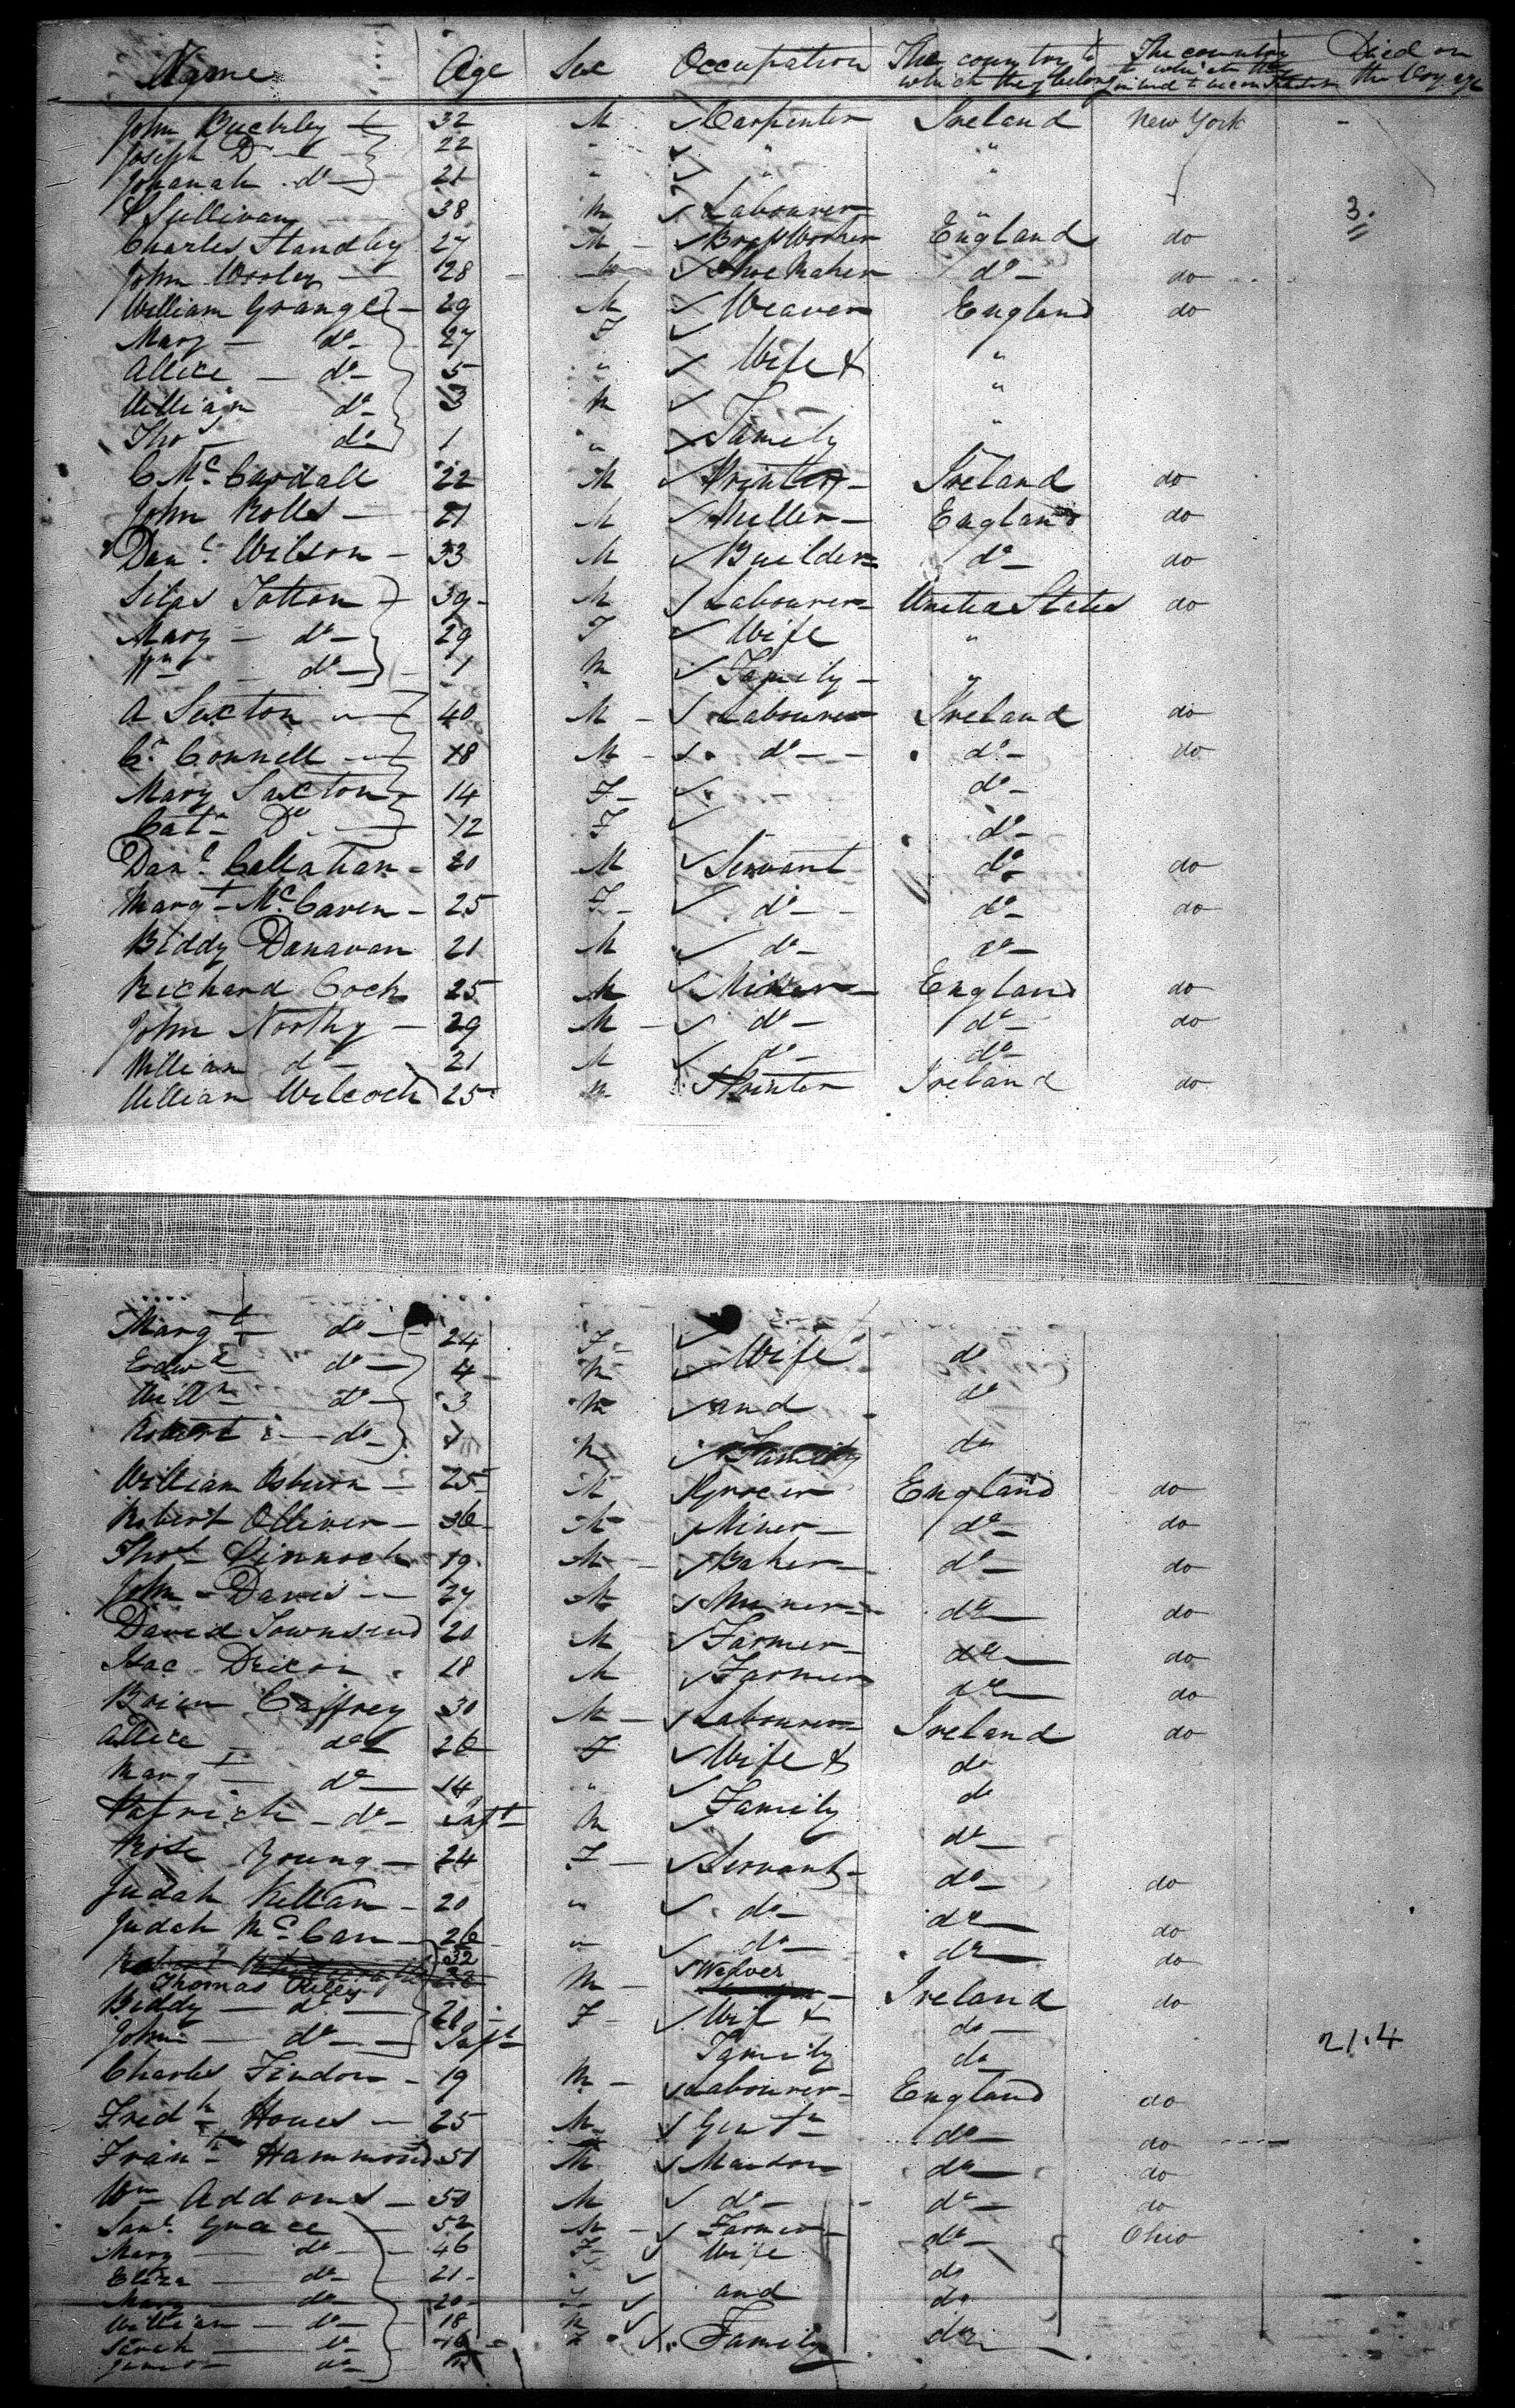 Name Age Sex Occupation The country to which they belong The country to which they intend to become Died on the Voyage
John Buckley 32 M Carpenter Ireland New York -
Joseph Do 22 " " "
Johanah do 21 " "
P Sullivan 38 M Labourer " 3.
Charles Standley 27 M Brass Worker England do
John Worley 28 Shoe Maker do do
William Grange 29 M Weaver England do
Mary do 27 F
Allice do 5 " Wife & "
William do 3 M "
Thos do 1 " Family "
C McCardall 22 M Printer Ireland do
John Rolls 21 M Miller England do
Danl Wilson 33 M Builder do do
Silas Totton 39 M Labourer United States do
Mary do 29 F Wife "
Wm do 1 M Family "
A Sexton 40 M Labourer Ireland do
Cs Connell 18 M do do do
Mary Saxton 14 F do
Cat Do 12 F do
Danl Callahan 20 M Servant do do
Margt McCaven 25 F do do do
Biddy Danavan 21 M do do
Richard Cock 25 M Miner England do
John Northy 29 M do do do
William do 21 M do do
William Wilcock 25 M Printer Ireland do
Margt do 24 F Wife do
Edwd do 4 M
Willm do 3 M and do
Robert do 1 M Family do
William Osburn 25 M Grocer England do
Robert Olliver 36 M Miner do do
Thos Pinnock 19 M Baker do do
John Davis 27 M Miner do do
David Townsend 20 M Farmer do do
Isac Dixon 18 M Farmer do do
Brien Caffrey 30 M Labourer Ireland do
Allice do 26 F Wife & do
Margt do 14 " Family do
Patrick do Inft M do
Rose Young 24 F Servant do do
Judah Kellan 20 " do do do
Judah McCan 26 " do do do
Thomas Riley 32 M Weaver Ireland do
Biddy do 20 F Wif & do
John do Inft Family do 21.4
Charles Findon 19 M Labourer England do
Fredk Howes 25 M Gentn do do
Frans Hammond 51 M Mason do do
Wm Addoms 50 M do do do
Saml Grace 52 M Farmer do Ohio
Mary do 46 F Wife
Eliza do 21 do
Mary do 20 F and do
William do 18 M
Sarah do 16 F Family do
James do